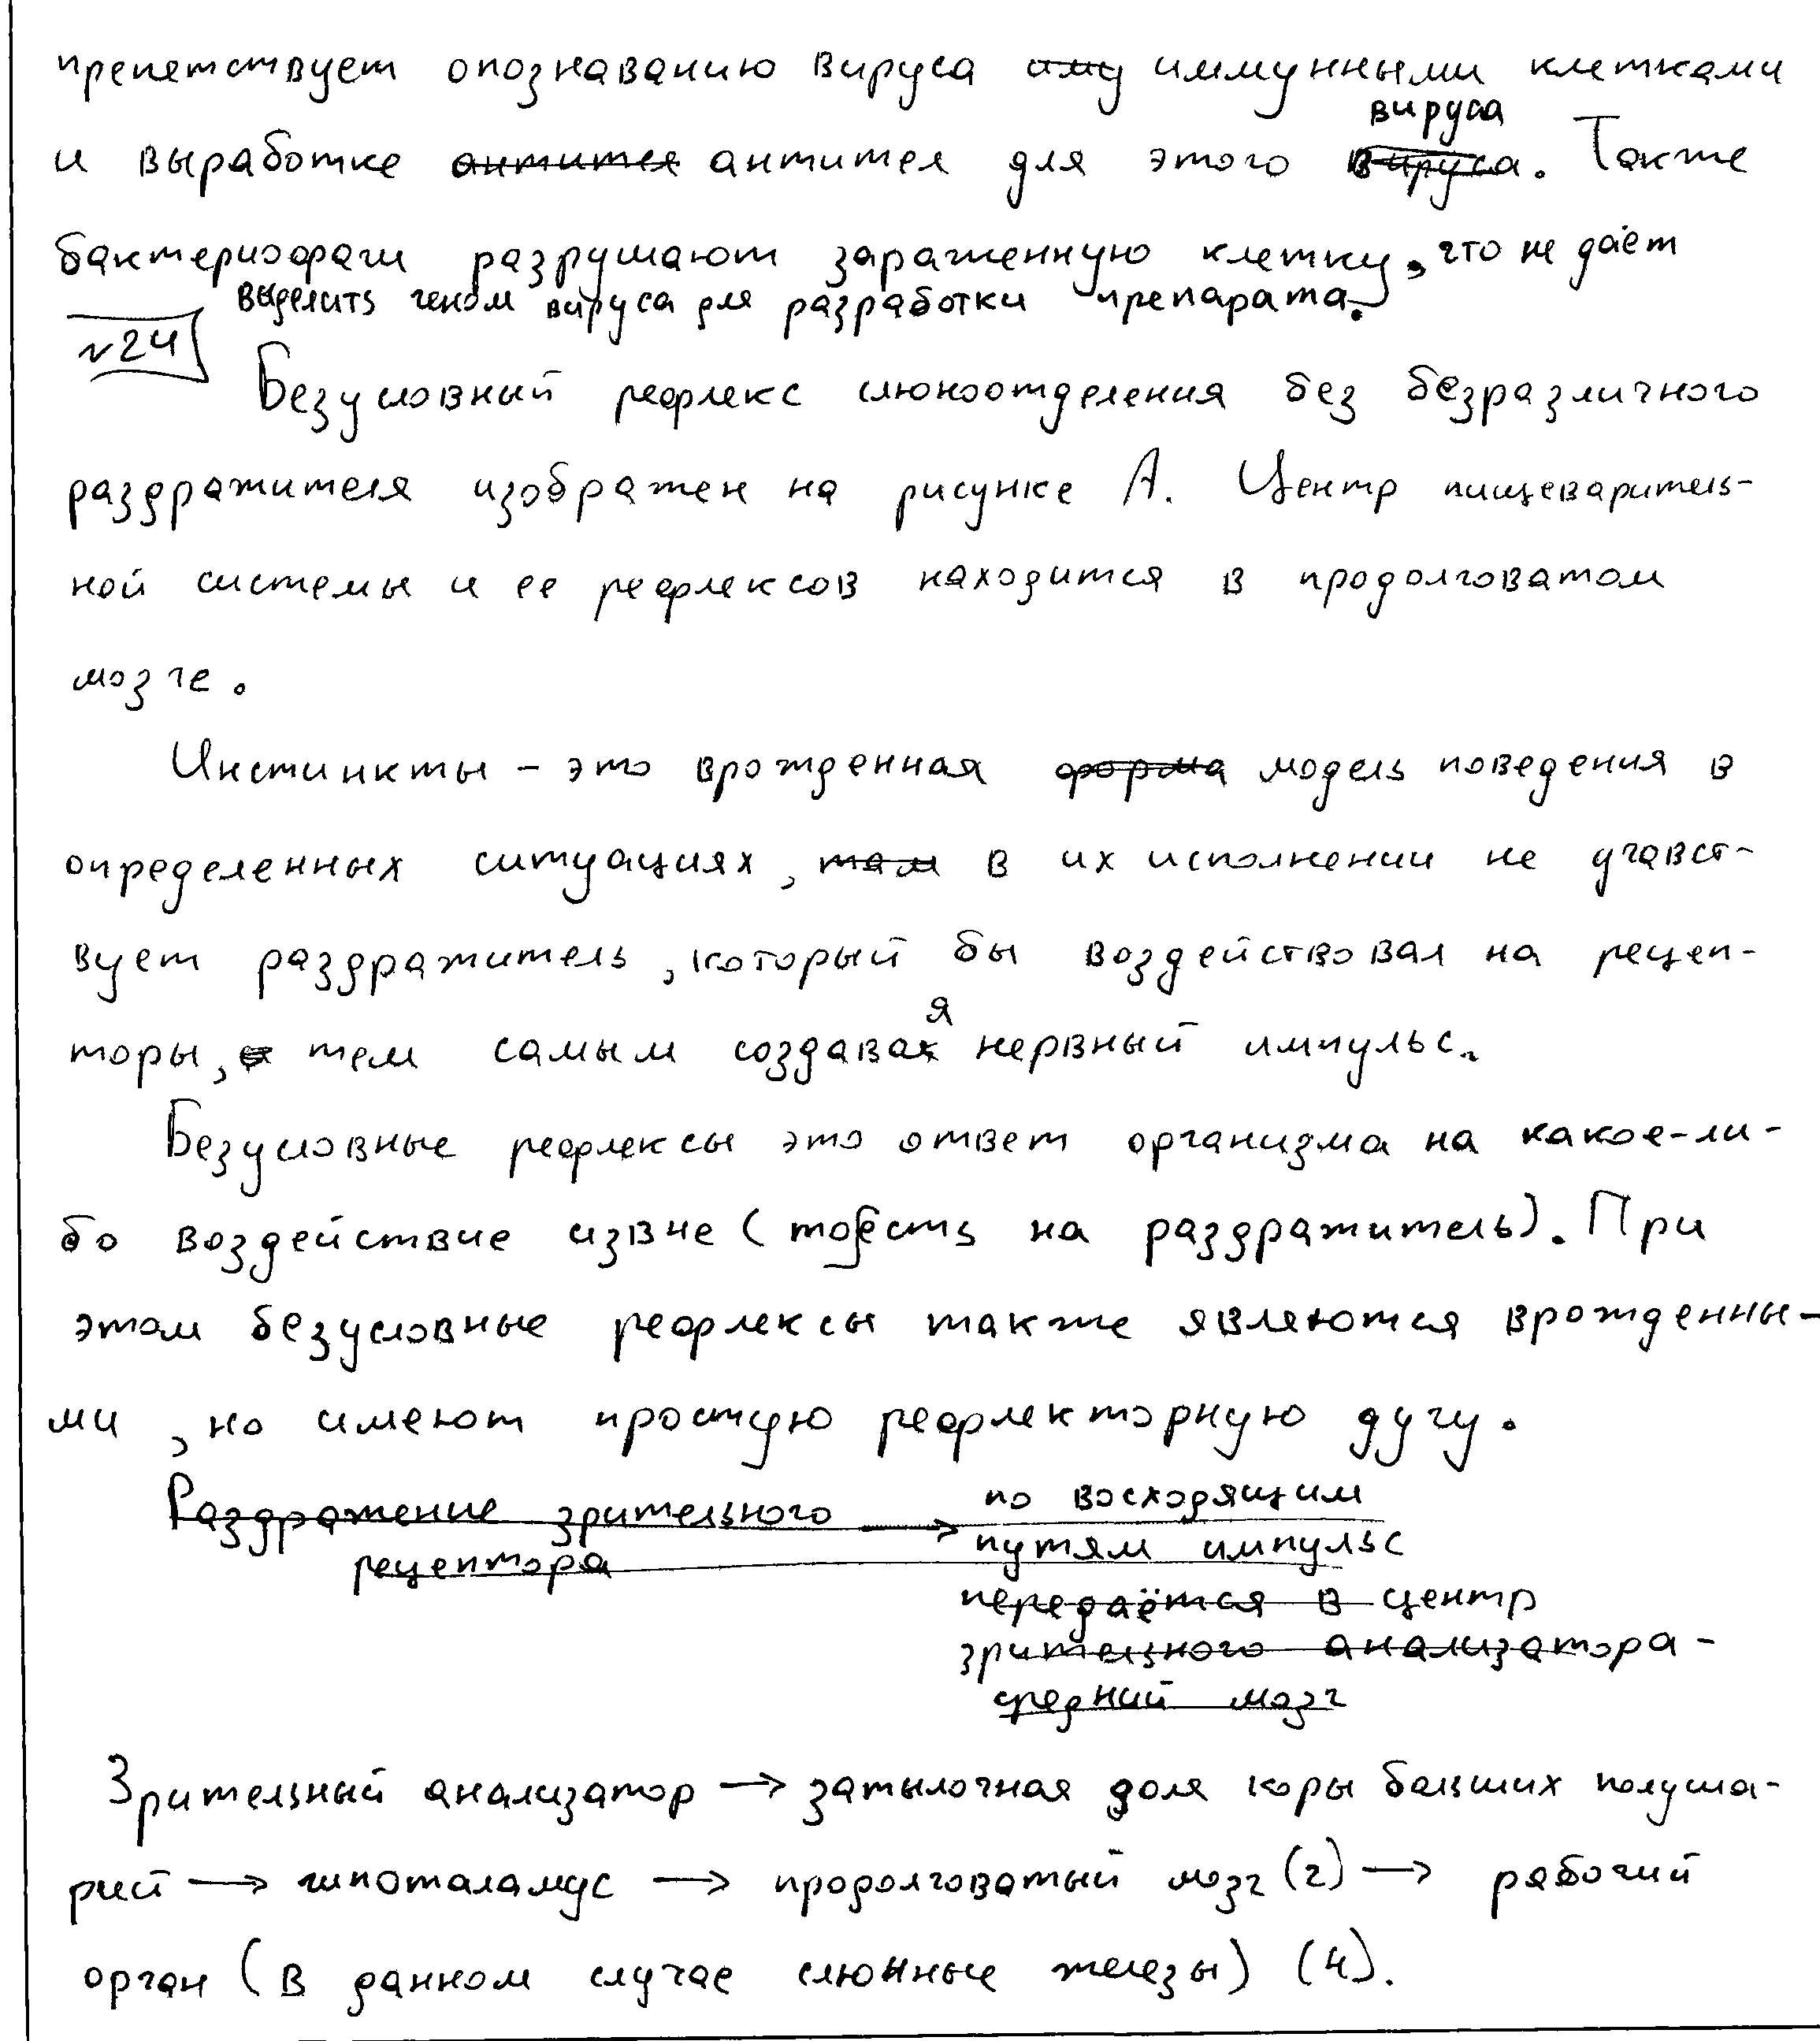 препетствует опознаванию вируса иму иммунными клетками
и выработке антител антител для этого вируса вируса. Также
бактериофаги разрушают зараженную клетку, что не даёт
выделить геном вируса для разработки препарата.
№24
Безусловный рефлекс слюноотделения без безразличного
раздражителя изображен на рисунке А. Центр пищеваритель-
ной системы и ее рефлексов находится в продолговатом
мозге.
Инстинкты - это врожденная форма модель поведения в
определенных ситуациях, там в их исполнении не учавст-
вует раздражитель, который бы воздействовал на рецеп-
торы, тем самым создавая нервный импульс.
Безусловные рефлексы это ответ организма на какое-ли-
бо воздействие извне (то есть на раздражитель). При
этом безусловные рефлексы также являются врожденны-
ми, но имеют простую рефлекторную дугу.
Раздражение зрительного → по восходящим
рецептора путям импульс
передаётся в центр
зрительного анализатора -
средний мозг
Зрительный анализатор → затылочная доля коры больших полуша-
рий → гипоталамус → продолговатый мозг (2) → рабочий
орган (в данном случае слюнные железы) (4).